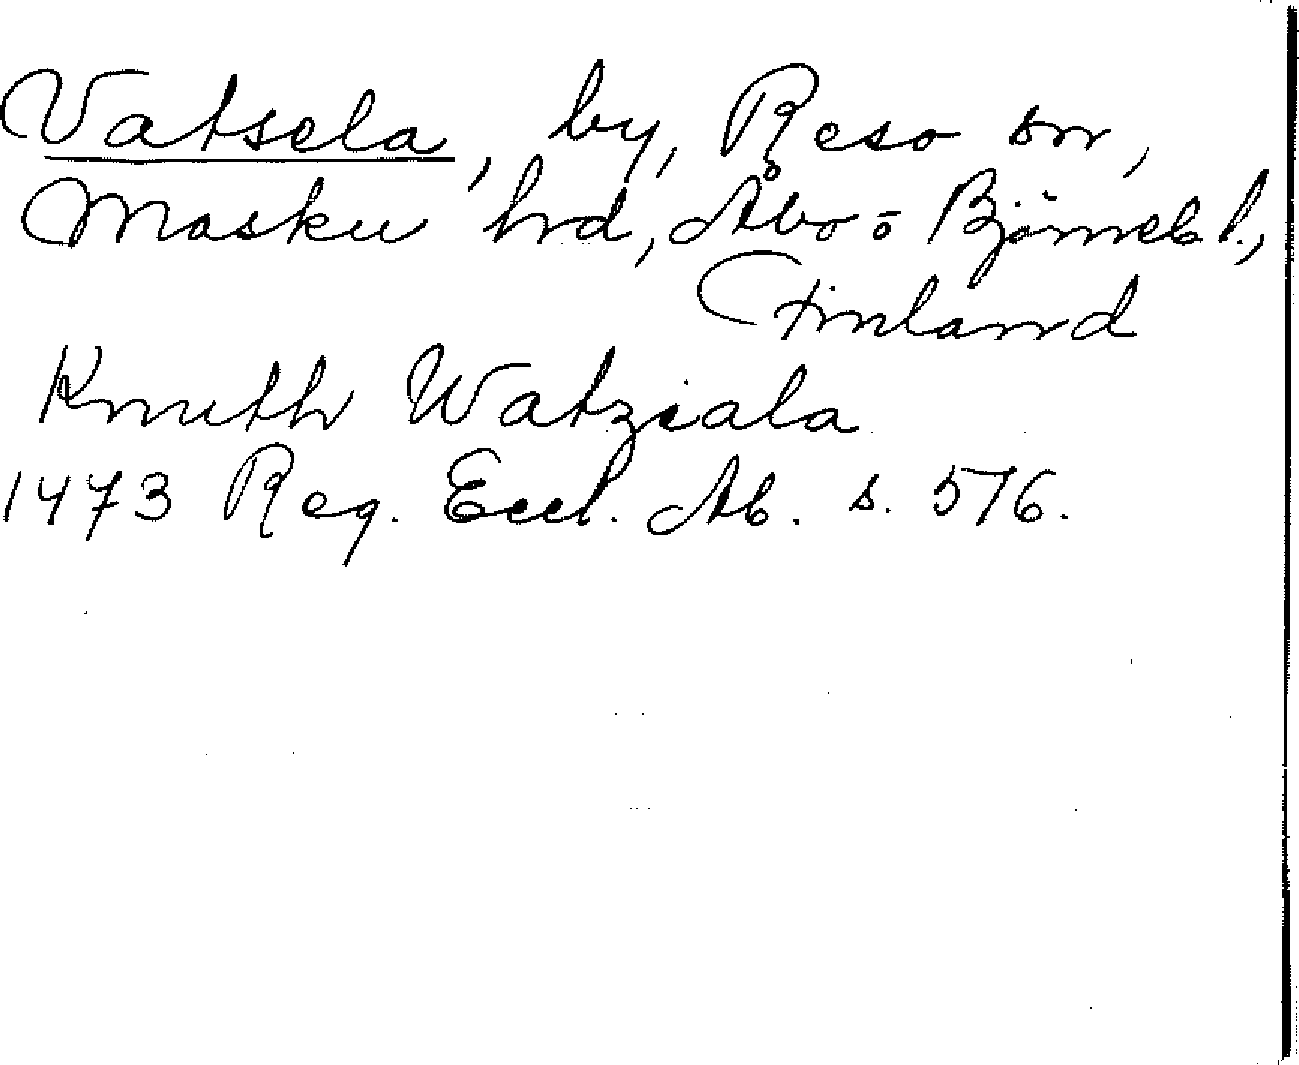 Vatsela, by, Reso sn,
Masku hrd, Åbo o Björneb l.,
Finland
Knuth Watziala
1473 Reg. Eccl. Ab. s. 576.